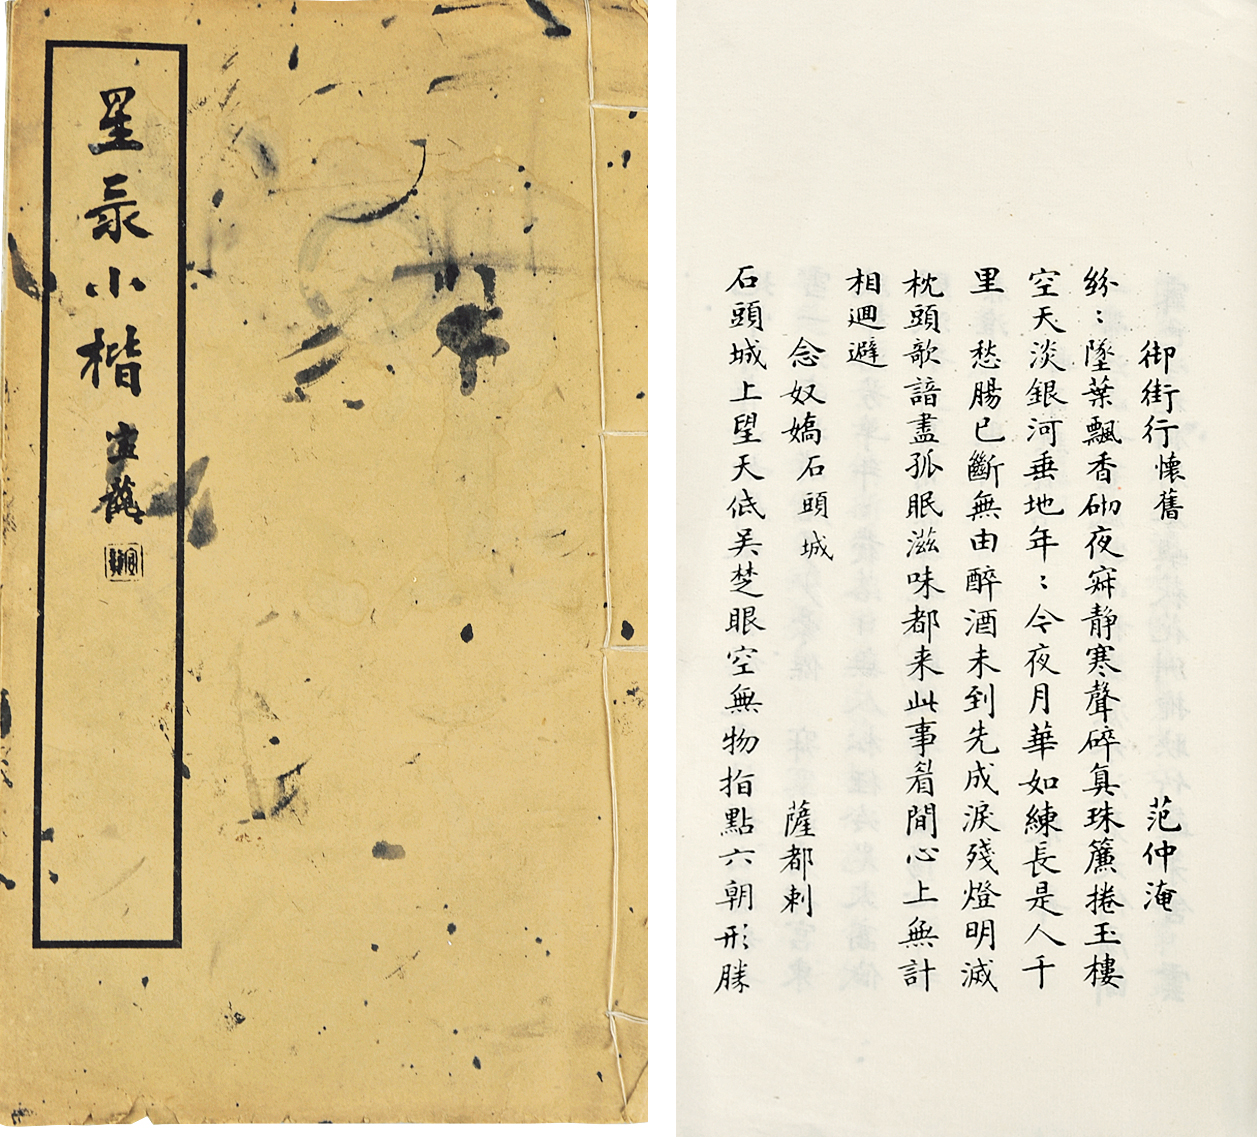 星彔小楷
御街行懷舊 范仲淹
紛：墜葉飄香砌夜寂静寒聲碎真珠簾捲玉樓
空天淡銀河垂地年：今夜月華如練長是人千
里 愁腸已斷無由醉酒未到先成淚殘燈明滅
枕頭欹諳盡孤眠滋味都来此事眉間心上無計
相迴避
念奴嬌石頭城 薩都剌
石頭城上望天低吴楚眼空無物指點六朝形勝